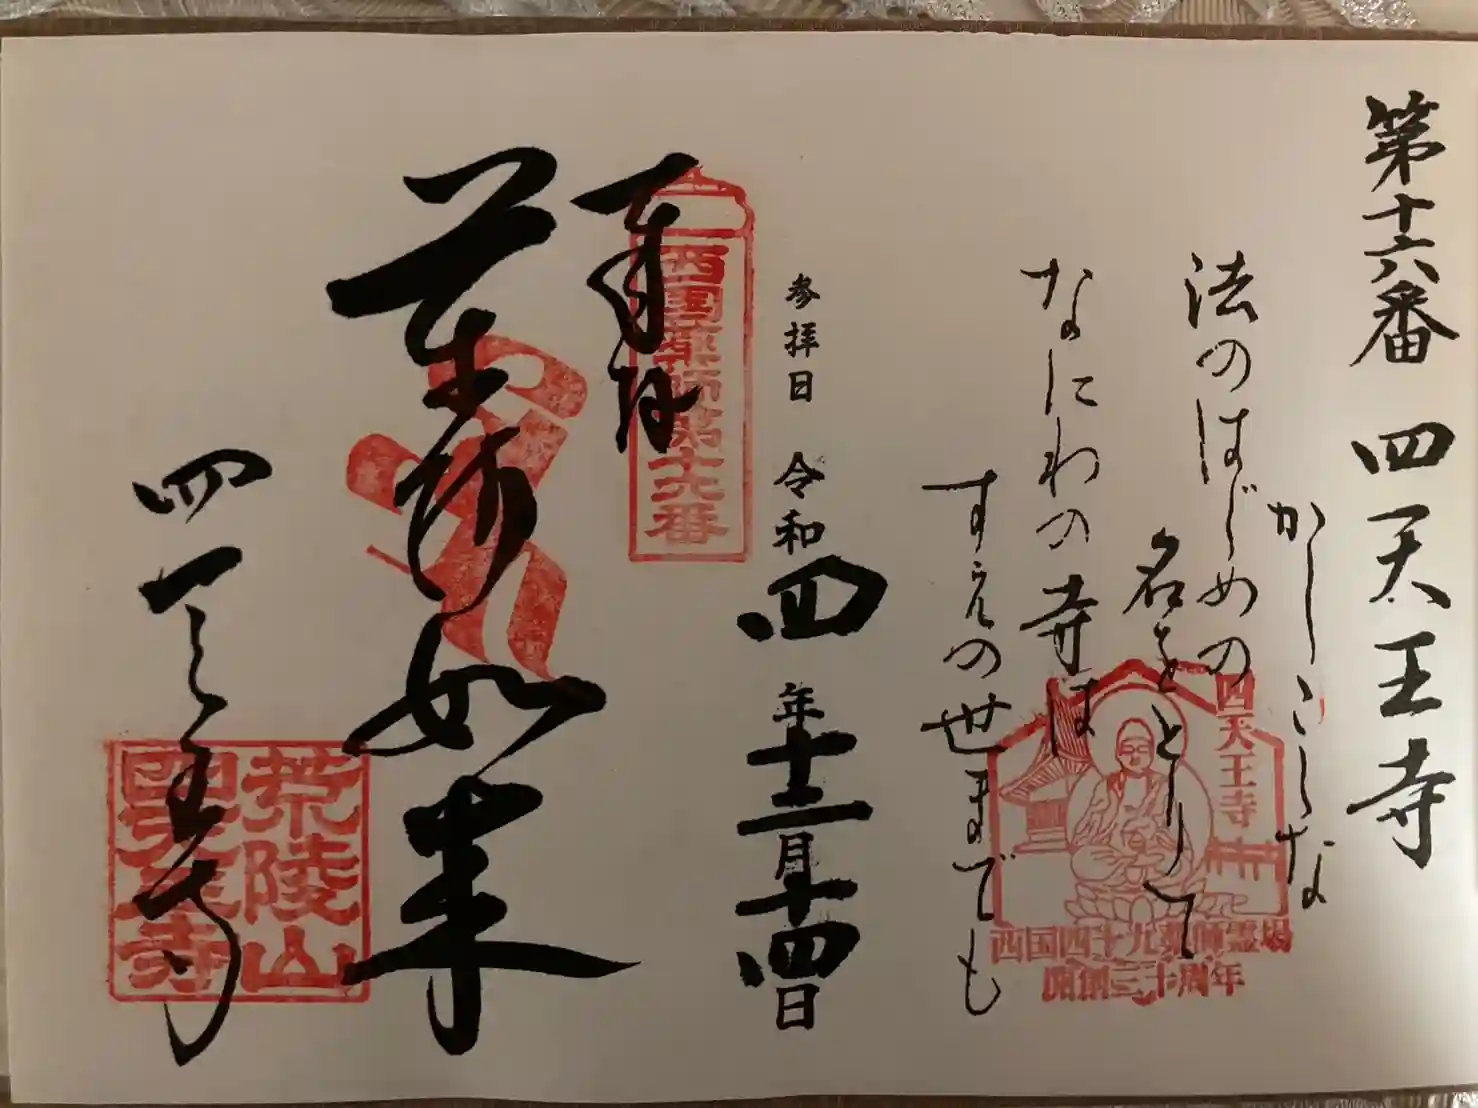 第十六番 四天王寺
かしこしな
法のはじめの
名をとりて
なにわの寺は
すえの世までも
四天王寺
西国四十九薬師霊場
開創三十周年
参拝日 令和四年十二月十四日
奉拝
西国薬師第十六番
薬師如来
四天王寺
荒陵山
四天王寺